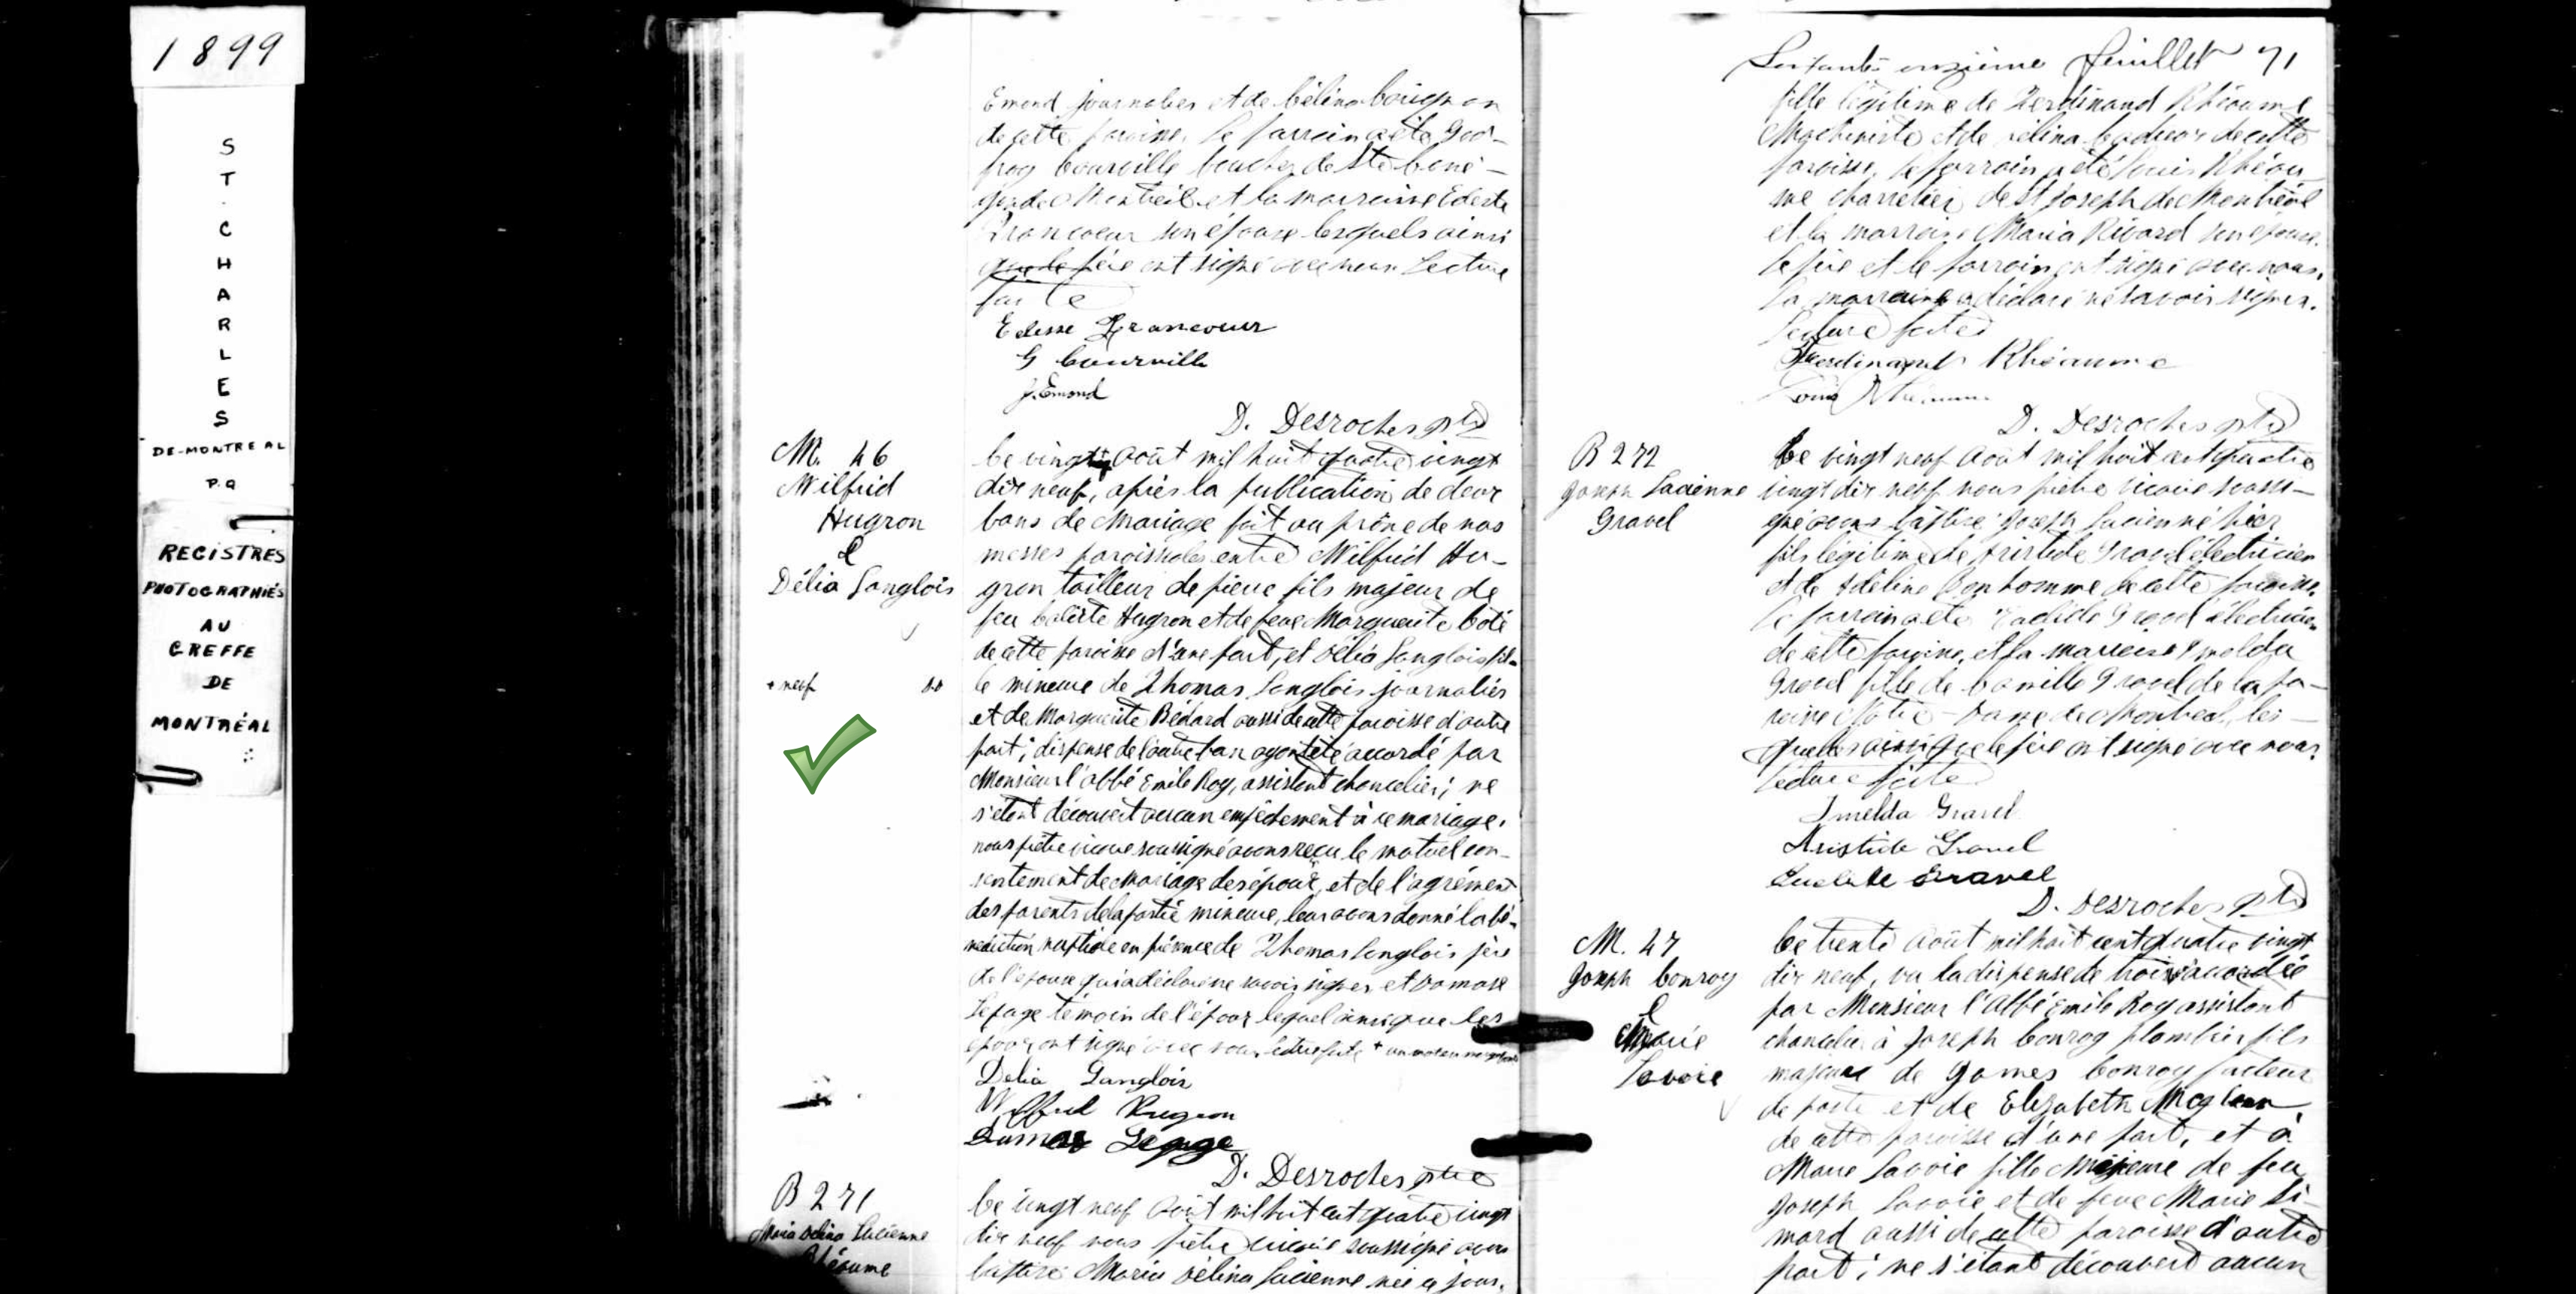 1899
ST. CHARLES
DE-MONTREAL
P.Q
REGISTRES
PHOTOGRAPHIÉS
AU
GREFFE
DE
MONTRÉAL
Emond journalier et de
de cette paroisse. Le parrain a été God-
froy Courville boucher de Ste Cuné-
gonde Montréal et la marraine
Francoeur son épouse lesquels ainsi
que le père ont signé avec nous. Lecture
faite
Francoeur
G Courville
J. Emond
D. Desroches ptre
M. 46
Wilfrid
Hugron
&
Délia Langlois
+ neuf
Ce vingt août mil huit quatre vingt
dix neuf, après la publication de deux
bans de mariage fait au prône de nos
messes paroissiales entre Wilfrid Hu-
gron tailleur de pierre fils majeur de
feu Calixte Hugron et de feue Marguerite Côté
de cette paroisse d'une part, et Délia Langlois fil-
le mineure de Thomas Langlois journalier
et de Marguerite Bédard aussi de cette paroisse d'autre
part; dispense de l'autre ban ayant été accordé par
Monsieur l'abbé Emile Roy, assistant chancelier; ne
s'étant découvert aucun empêchement à ce mariage,
nous prêtre vicaire soussigné avons reçu le mutuel con-
sentement de mariage des époux, et de l'agrément
des parents de la partie mineure, leur avons donné la bé-
nédiction nuptiale en présence de Thomas Langlois père
de l'épouse qui a déclaré ne savoir signer et Damase
Lepage témoin de l'époux lequel ainsi que les
époux ont signé avec nous lecture faite +
Delia Langlois
Wilfrid Hugron
Damase Lepage
D. Desroches ptre
B 271
Maria Délina Lucienne
Rhéaume
Ce vingt neuf Août mil huit cent quatre vingt
dix neuf nous prêtre vicaire soussigné avons
baptisé Maria Délina Lucienne née ce jour,
Soixante onzième feuillet 71
fille légitime de Ferdinand Rhéaume
Machiniste et de Délina de cette
paroisse, le parrain a été Louis Rhéau-
me charretier de St Joseph de Montréal
et la marraine Maria Rivard son épouse.
Le père et le parrain ont signé avec nous.
La marraine a déclaré ne savoir signer.
Lecture faite
Ferdinand Rhéaume
Louis Rhéaume
D. Desroches ptre
B 272
Joseph Lucienne
Gravel
Ce vingt neuf Août mil huit cent quatre
vingt dix neuf nous prêtre vicaire soussi-
gné avons baptisé Joseph Lucien né hier
fils légitime de Aristide Gravel électricien
et de Adéline Bonhomme de cette paroisse.
Le parrain a été Gravel électricien
de cette paroisse, et la marraine Imelda
Gravel fille de Camille Gravel de la pa-
roisse Notre-Dame de Montréal, les-
quels ainsi que le père ont signé avec nous.
Lecture faite
Imelda Gravel
Aristide Gravel
Gravel
D. Desroches ptre
M. 47
Joseph Conroy
&
Marie
Savoie
Ce trente Août mil huit cent quatre vingt
dix neuf, vu la dispense de trois accordée
par Monsieur l'abbé Emile Roy assistant
chancelier à Joseph Conroy plombier fils
majeur de James Conroy facteur
de poste et de Elizabeth
de cette paroisse d'une part, et à
Marie Savoie fille Majeure de feu
Joseph Savoie et de feue Marie Si-
mard aussi de cette paroisse d'autre
part; ne s'étant découvert aucun